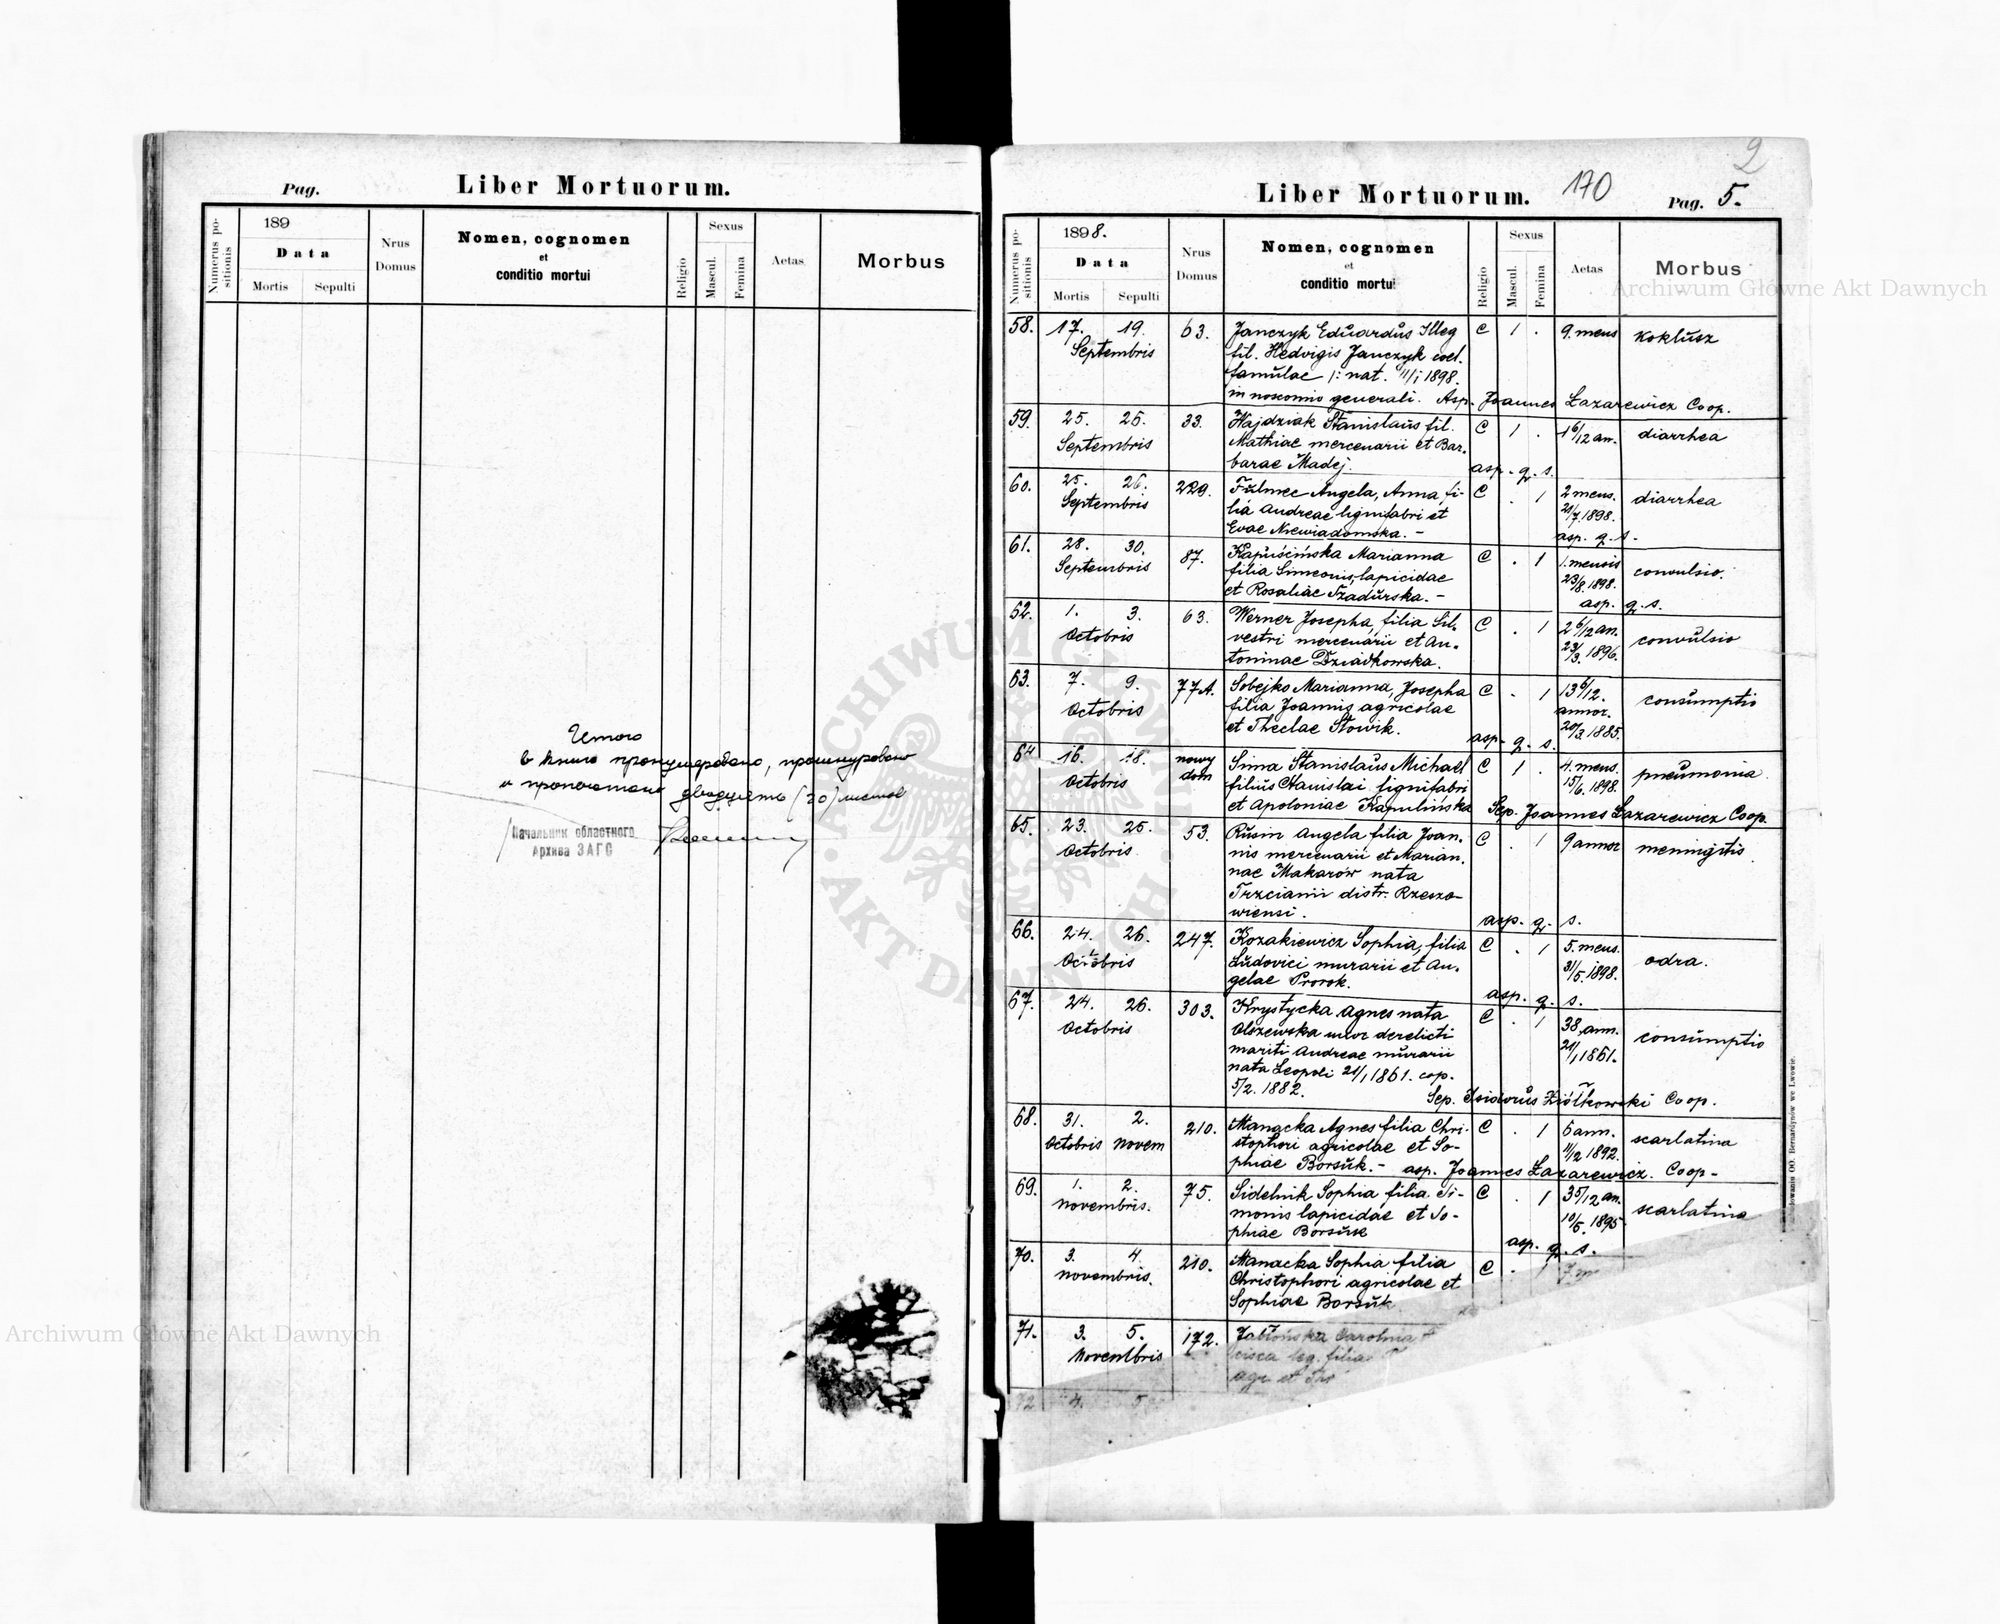 Pag.
Liber Mortuorum.
Numerus positionis
189
Data
Mortis
Sepulti
Nrus
Domus
Nomen, cognomen
et
conditio mortui
Religio
Sexus
Mascul.
Femina
Aetas
Morbus
Итого
в книге пронумеровано, прошнуровано
и пропечатано двадцать (20) листов
Начальник областного
Архива ЗАГС
2
Liber Mortuorum.
170
Pag. 5.
Numerus positionis
1898.
Data
Mortis
Sepulti
Nrus
Domus
Nomen, cognomen
et
conditio mortui
Religio
Sexus
Mascul.
Femina
Aetas
Morbus
58. 17. 19. 63. Janczyk Eduardus Illeg C 1 . 9. mens koklusz
Septembris fil. Hedvigis Janczyk coel.
famulae /: nat. 11/1 1898.
in noscomio generali. Asp. Joannes Łazarewicz Coop.
59. 25. 26. 33. Hajdziak Stanislaus fil. C 1 . 1 6/12 an. diarrhea
Septembris Mathiae mercenarii et Bar-
barae Madej. asp. q. s.
60. 25. 26. 229. Angela, Anna fi- C . 1 2 mens. diarrhea
Septembris lia Andreae lignifabri et 21/7.1898.
Evae Niewiadomska. - asp. q. s.
61. 28. 30. 87. Kapuścińska Marianna C . 1 1. mensis convulsio.
Septembris filia Simeonis, lapicidae 23/8.1898.
et Rosaliae Szadurska. - asp. q. s.
62. 1. 3. 63. Werner Josepha, filia Sil- C . 1 2 6/12 an. convulsio
Octobris vestri mercenarii et An- 23/3. 1896.
toninae Dziadkowska.
63. 7. 9. 77A. Sobejko Marianna, Josepha C . 1 13 6/12. consumptio
Octobris filia Joannis agricolae annor.
et Theclae Słowik. 20/3 1885.
asp. q. s.
64 16. 18. nowy dom Sima Stanislaus Michael C 1 . 4. mens. pneumonia
Octobris filius Stanislai lignifabri 15/6. 1898.
et Apoloniae Kapulińska Sep. Joannes Łazarewicz Coop.
65. 23. 25. 53. Rusin Angela filia Joan- C . 1 9 annor meningitis
Octobris nis mercenarii et Marian-
nae Makarów nata
Trzcianii distr. Rzeszo-
wiensi. asp. q. s.
66. 24. 26. 247. Kozakiewicz Sophia, filia C . 1 5. mens. odra.
Octobris Ludovici murarii et An- 31/5.1898.
gelae Prorok. asp. q. s.
67. 24. 26. 303. Krystycka Agnes nata C . 1 38, ann. consumptio
Octobris Olszewska uxor derelicti 21/1 1861.
mariti Andreae murarii
nata Leopoli 21/1 1861. cop.
5/2. 1882. Sep. Isidorus Ziółkowski Coop.
68. 31. 2. 210. Manacka Agnes filia Chri- C . 1 6 ann. scarlatina
Octobris Novem stophori agricolae et So- 11/2 1892.
phiae Borsuk. - asp. Joannes Łazarewicz. Coop-
69. 1. 2. 75. Sidelnik Sophia filia Si- C . 1 3 5/12 an. scarlatina
Novembris. monis lapicidae et So- 10/5. 1895
phiae Borsuk asp. q. s.
70. 3. 4. 210. Manacka Sophia filia C . 1 7. m
Novembris. Christophori agricolae et
Sophiae Borsuk
71. 3. 5. 172. Jabłońska Carolina
Novembris cisca leg. filia
agr. et
72 4. 5
Archiwum Główne Akt Dawnych
Archiwum Główne Akt Dawnych
ARCHIWUM GŁÓWNE AKT DAWNYCH
OO. Bernardynów we Lwowie.